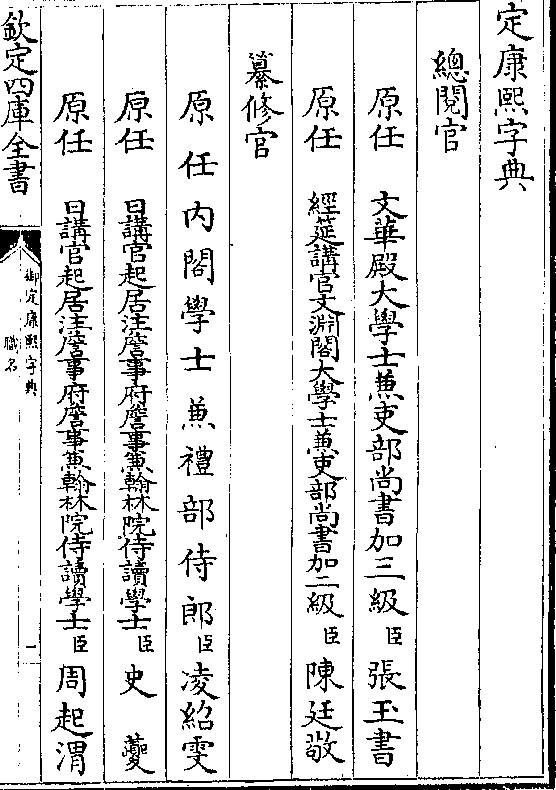 定康熙字典
總閱官
原任 文華殿大學士兼吏部尚書加三級臣張玉書
原任 經筵講官文淵閣大學士兼吏部尚書加二級臣陳廷敬
纂修官
原任內閣學士兼禮部侍郎臣凌紹雯
原任 日講官起居注詹事府詹事兼翰林院侍讀學士臣史夔
原任 日講官起居注詹事府詹事兼翰林院侍讀學士臣周起渭
欽定四庫全書
御定康熙字典
職名
一